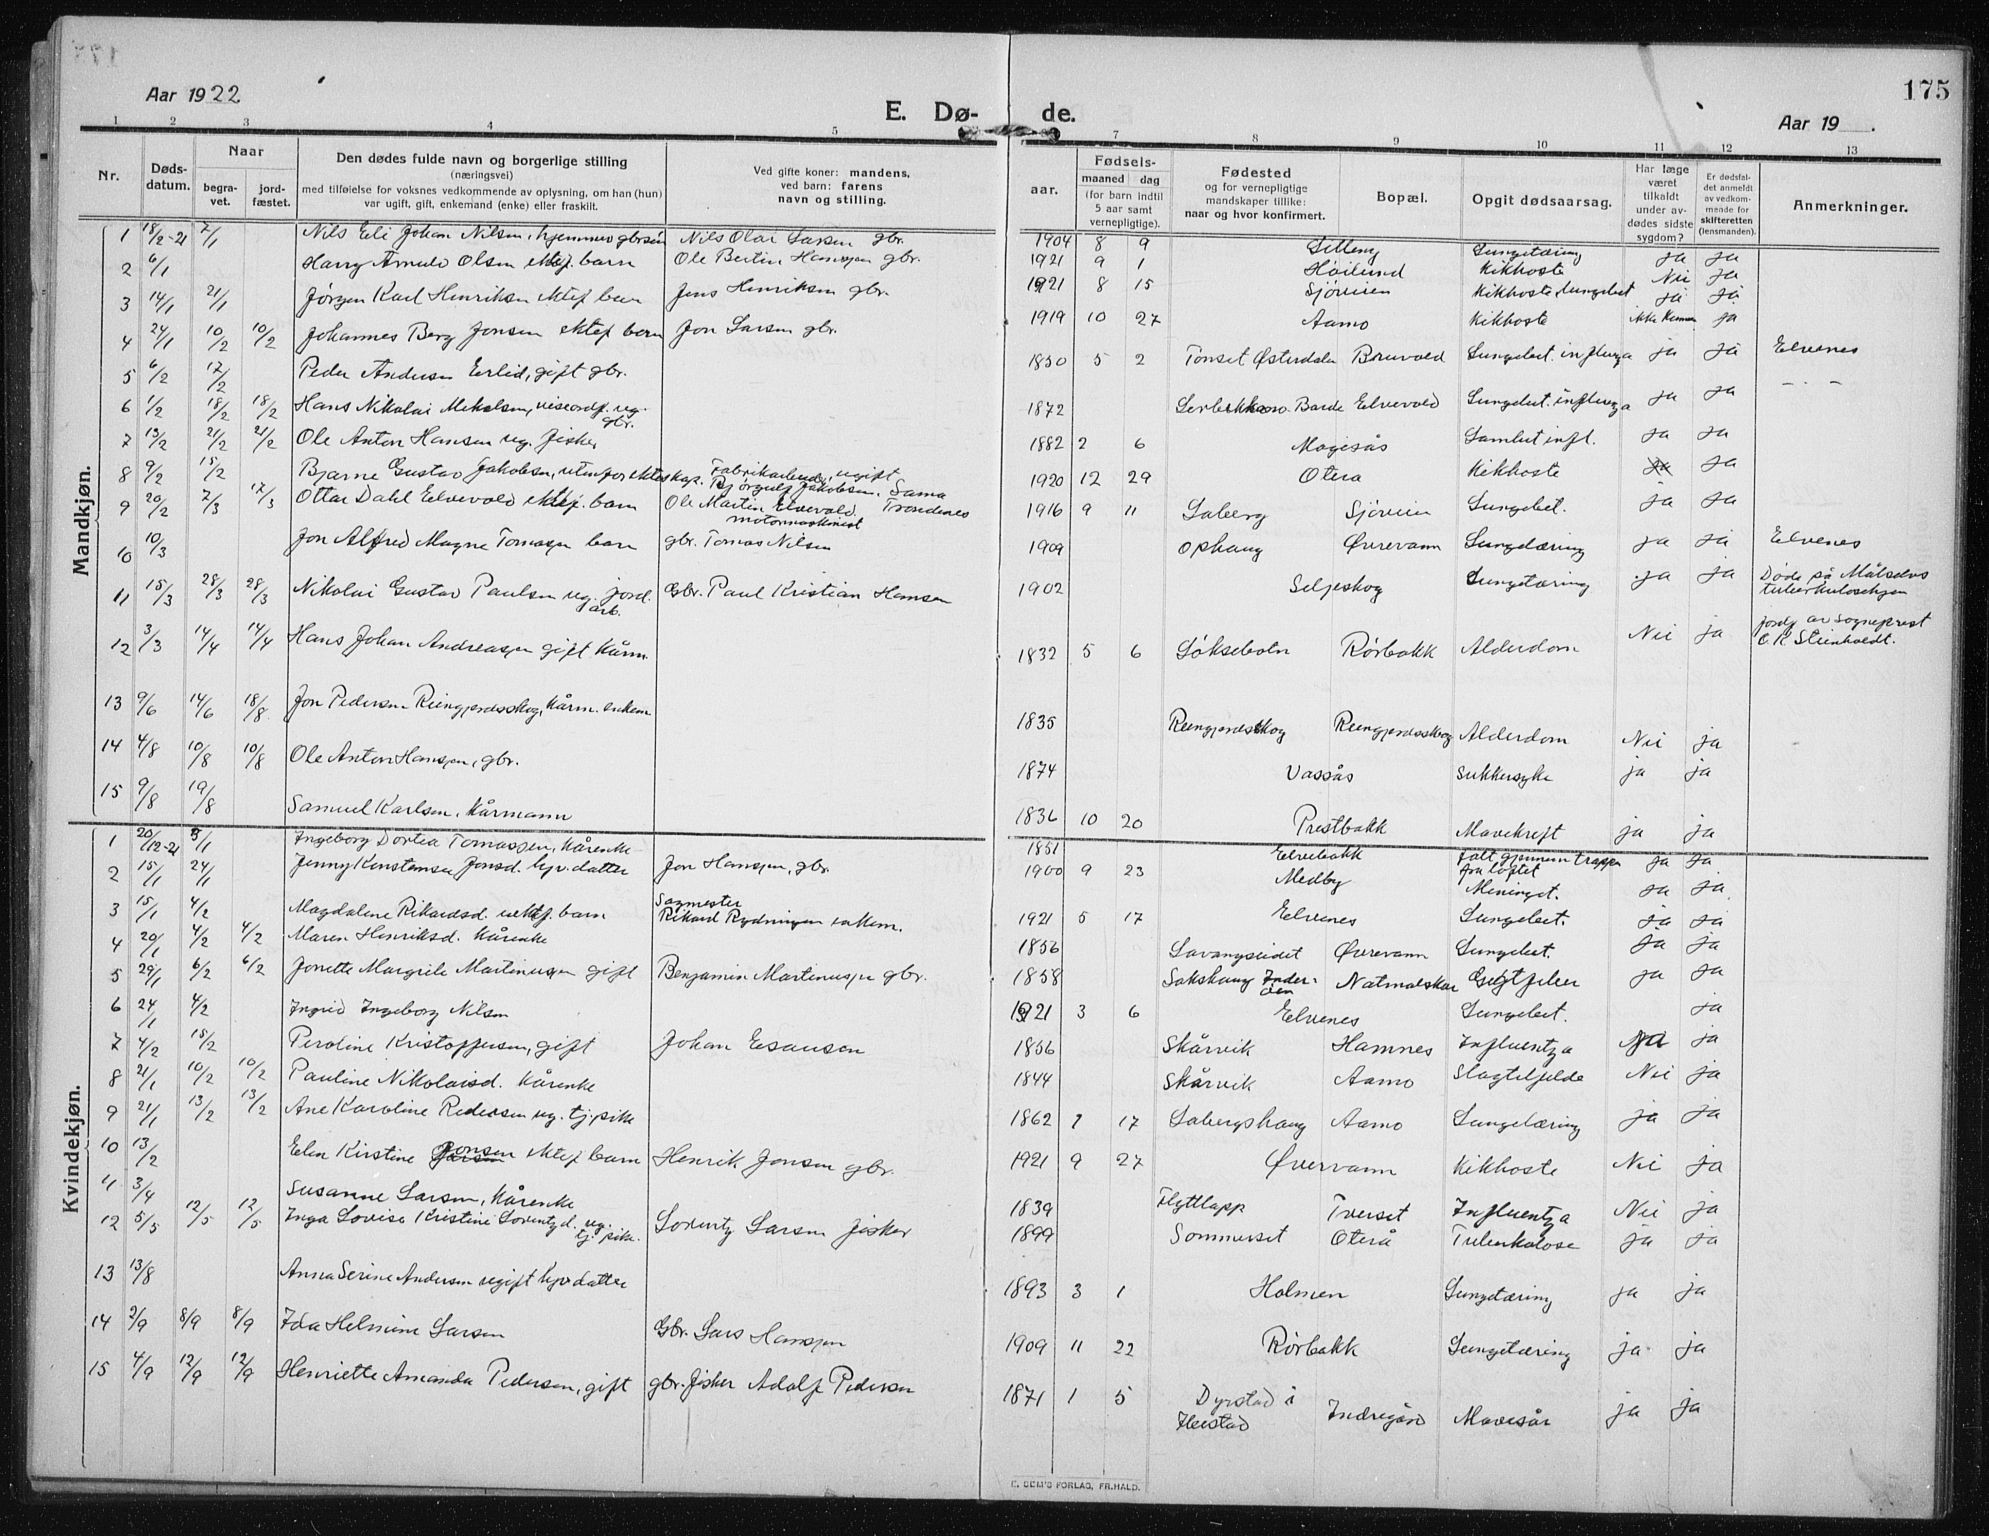 175
Aar 1922
E. Dø- de.
Aar 19
1 2 3 4 5 7 8 9 10 11 12 13
Nr.
Døds-datum.
Naar
begra-vet.
jord-fæstet.
Den dødes fulde navn og borgerlige stilling
(næringsvei)
med tilføielse for voksnes vedkommende av oplysning, om han (hun)
var ugift, gift, enkemand (enke) eller fraskilt.
Ved gifte koner: mandens,
ved barn: farens
navn og stilling.
aar.
Fødsels-
maaned dag
(for barn indtil
5 aar samt
vernepligtige).
Fødested
og for vernepligtige
mandskaper tillike:
naar og hvor konfirmert.
Bopæl.
Opgit dødsaarsag.
Har læge
været
tilkaldt
under av-
dødes sidste
sygdom?
Er dødsfal-
det anmeldt
av vedkom-
mende for
skifteretten
(lensmanden).
Anmerkninger.
Mandkjøn.
1 18/2-21 7/1 Nils Eli Johan Nilsen, hjemmev gbrsøn Nils Olai Larsen gbr. 1904 8 9 Lungetæring ja ja
2 6/1 Harry Arnulv Olsen ektef. barn Ole Bertin Hanssen gbr. 1921 9 1 Høilund Kikhoste Nei ja
3 14/1 21/1 Jørgen Karl Henriksen ektef barn Jens Henriksen gbr. 1921 8 15 Sjøveien Kikhoste, Lungebet ja ja
4 24/1 10/2 10/2 Johannes Berg Jonsen ektef barn Jon Larsen gbr. 1919 10 27 Aamo Kikhoste ja
5 6/2 17/2 Peder Andersen Eelid, gift gbr. 1850 5 2 Tønset Østerdalen Lungebet. influenza ja ja Elvenes
6 1/2 18/2 18/2 Hans Nikolai Mikalsen, viseordf. ug. gbr. 1872 Barde Elvevold Lungebet. influenza ja ja - " -
7 13/2 21/2 21/2 Ole Anton Hansen ug. fisker 1882 2 6 Mogesås infl. ja ja
8 9/2 15/2 Bjarne Gustav Jakobsen, utenfor ektesk. Fabrikarbeider, ugift Jakobsen, Sama 1920 12 29 Oterå Kikhoste ja
9 20/2 7/3 17/3 Ottar Dahl Elvevold ektef. barn Ole Martin Elvevold. Trondenes motormaskinist 1916 9 11 Laberg Sjøveien Lungebet. ja ja
10 10/3 Jon Alfred Magne Tomassen barn gbr. Tomas Nilsen 1909 Ophaug Øvrevann Lungetæring ja ja Elvenes
11 15/3 28/3 28/3 Nikolai Gustav Paulsen ug. jord. arb. Gbr. Paul Kristian Hansen 1902 Seljeskog Lungetæring ja ja Døde på Målselvs tuberkulosehjem
12 3/3 14/4 14/4 Hans Johan Andreassen gift Kårm. 1832 5 6 Løksebotn Rørbakk Alderdom Nei ja jordf av sogneprest
13 9/6 14/6 18/8 Jon Pedersen Reingjerdsskog, kårm. enkem 1835 Reingjerdsskog Reingjerdsskog Alderdom Nei ja
14 4/8 10/8 10/8 Ole Anton Hanssen, gbr. 1874 Vassås Sukkersyke ja ja
15 9/8 19/8 Samuel Karlsen, Kårmann 1836 10 20 Prestbakk Mavekreft ja ja
Kvindekjøn.
1 20/12-21 5/1 Ingeborg Dortea Tomassen, Kårenke 1851 Elvebakk Falt gjennem trappen fra loftet ja ja
2 15/1 24/1 Jenny Konstanse Jonsd. hjv. datter Jon Hanssen, gbr. 1900 9 23 Medby Meninget. ja ja
3 15/1 4/2 Magdalene Rikardsd. ektef. barn Sagmester Rikard Rydningen enkem. 1921 5 17 Elvenes Lungebet. ja ja
4 20/1 4/2 4/2 Maren Henriksd. Kårenke 1856 Lavangseidet Øvrevann Lungebet. ja ja
5 29/1 6/2 6/2 Jonette Margrete Martinussen gift Benjamin Martinussen gbr. 1858 Sakshaug Inderøen ja ja
6 24/1 4/2 Ingrid Ingeborg Nilsen 1921 3 6 Elvenes Lungebet. ja
7 4/2 15/2 Peroline Kristoffersen, gift Johan Esausen 1856 Skårvik Hamnes Influentza ja ja
8 21/1 10/2 10/2 Pauline Nikolaisd. Kårenke 1844 Skårvik Aamo Slagtilfelde Nei ja
9 21/1 13/2 13/2 Ane Karoline Pedersen ug. tj. pike 1862 1 17 Labergshaug Aamo Lungetæring ja ja
10 13/2 Elen Kirstine Jonsen ektef barn Henrik Jonsen gbr. 1921 9 27 Øvervann Kikhoste Nei ja
11 3/4 Susanne Larsen, Kårenke 1839 Flyttlapp Tverset Influentza Nei ja
12 5/5 12/5 12/5 Inga Lovise Kristine Lorentzd. ug. tj. pike. Lorentz Larsen fisker 1899 Sommerset Oterå Tuberkulose ja ja
13 13/8 Anna Serine Andersen ugift hjv datter 1893 3 1 Holmen Lungetæring ja ja
14 2/9 8/9 8/9 Ida Helmine Larsen Gbr. Lars Hanssen 1909 11 22 Rørbakk Lungetæring ja ja
15 4/9 12/9 12/9 Henriette Amanda Pedersen, gift gbr. fisker Adolf Pedersen 1871 1 5 Dyrstad i Indregård Mavesår ja ja
E. SEM'S FORLAG, FR.HALD.